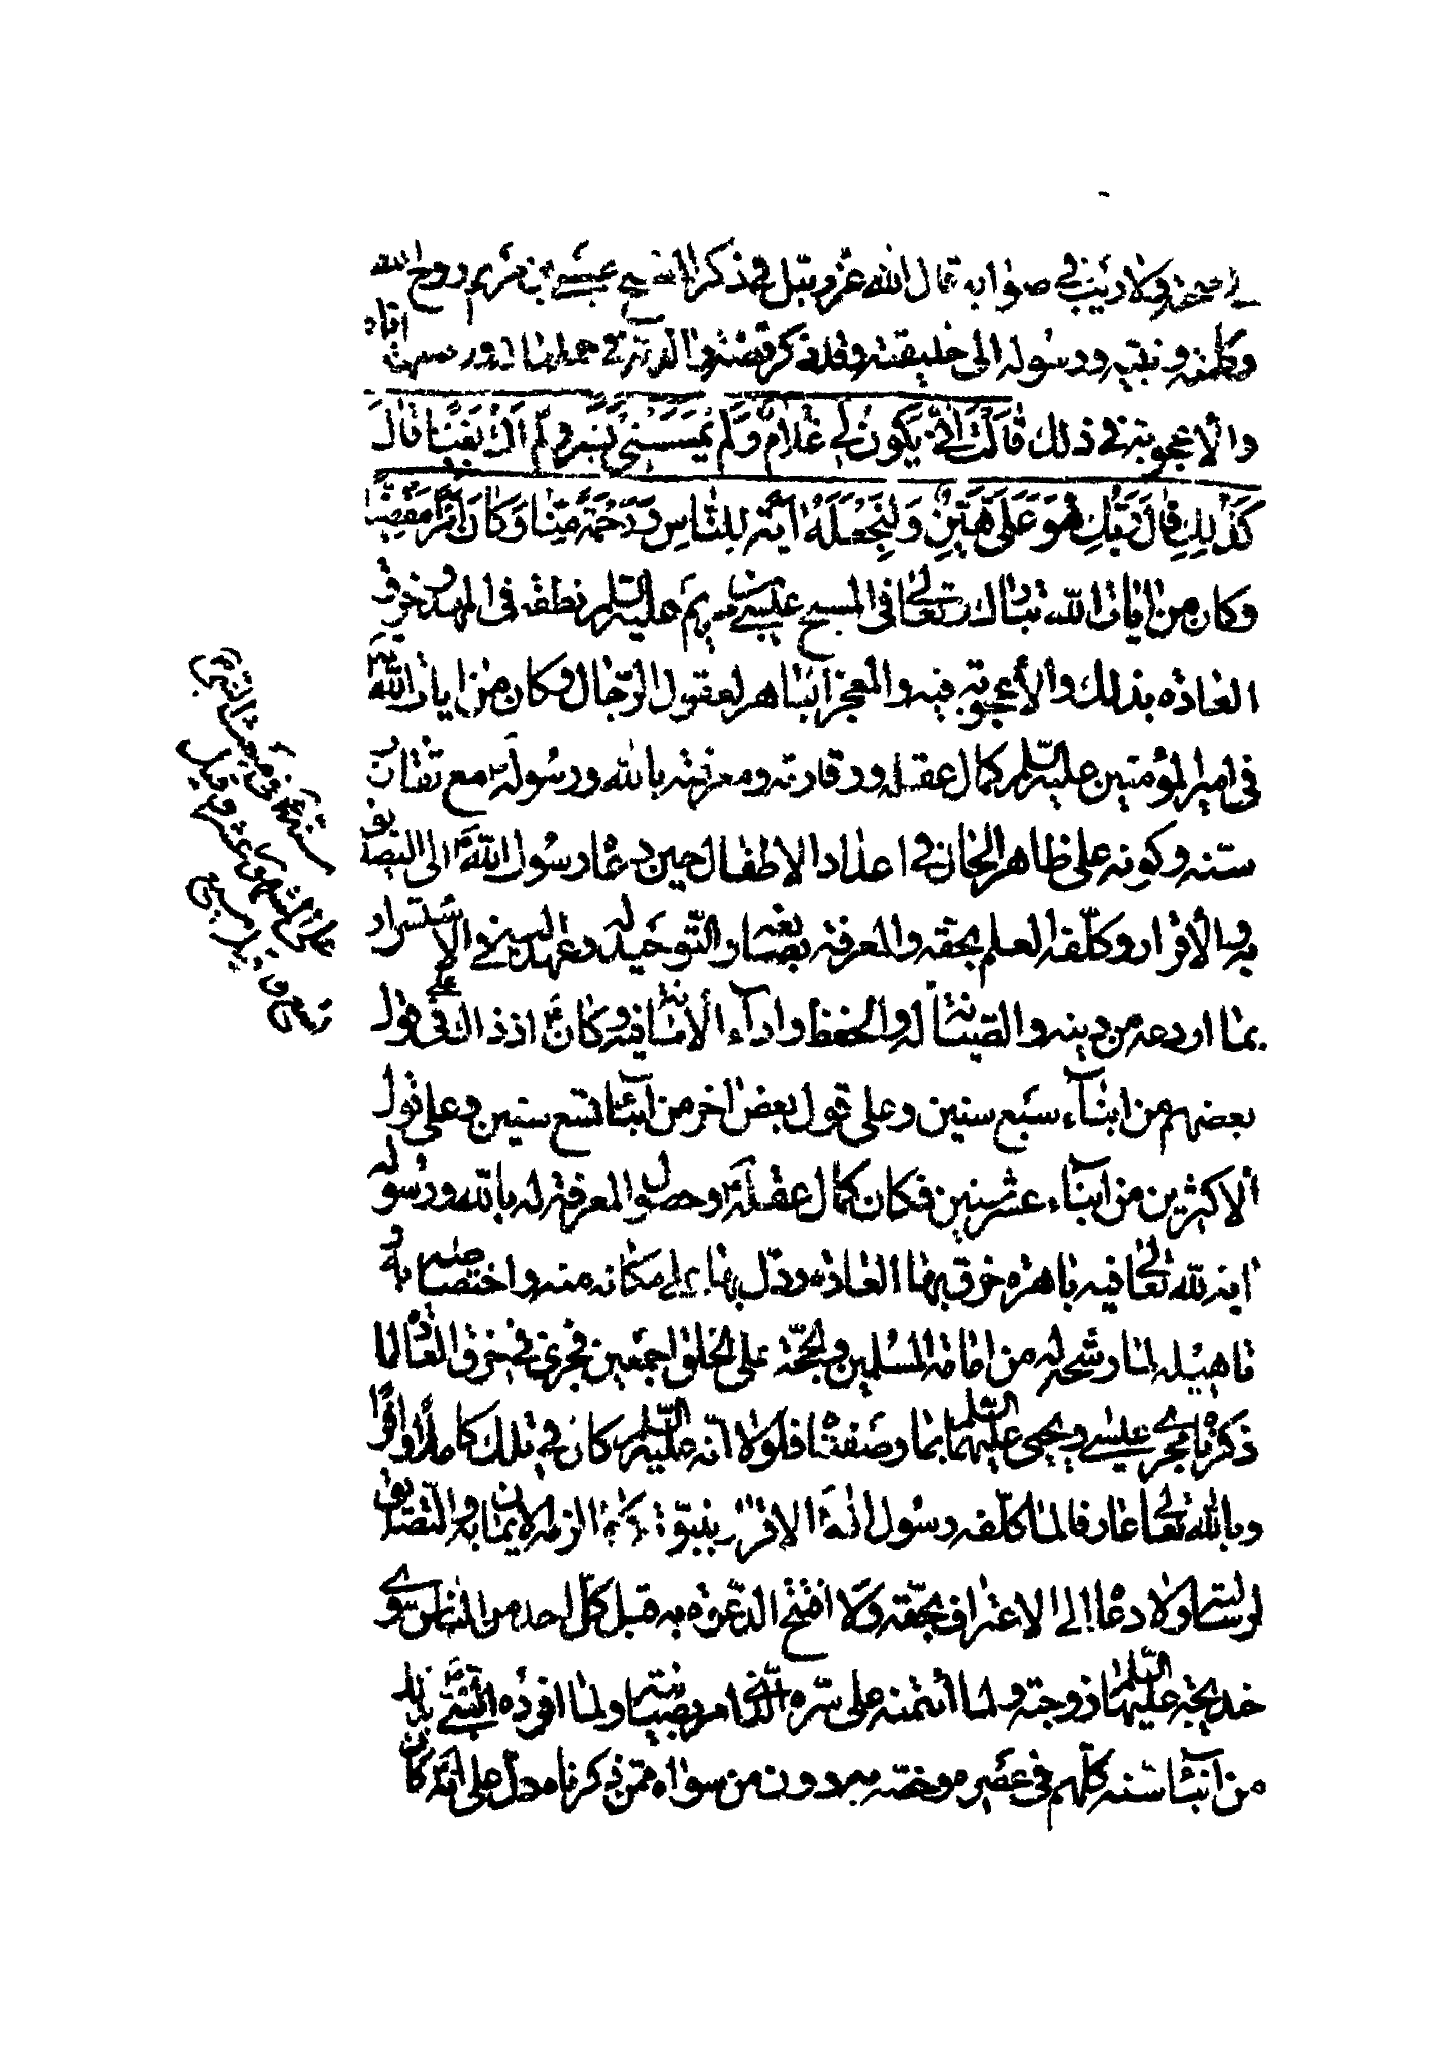 في صحته ولا ريب في صوابه قال الله عز وجل في ذكر المسيح عيسى بن مريم روح الله
وكلمته ونبيه ورسوله الى خليقته وقد ذكر قصة والدته في حملها له ووضعها اياه
والاعجوبة في ذلك قَالَتْ اَنّٰى يَكُونُ لي غُلَامٌ وَلَم يَمْسَسْنِي بَشَرٌ وَلَمْ اَكُ بَغِيًّا قَالَ
كَذٰلِكِ قَالَ رَبُّكِ هُوَ عَلَيَّ هَيِّنٌ وَلِنَجْعَلَهُ آيَةً لِلنَّاسِ وَرَحْمَةً مِنَّا وَكَانَ اَمْرًا مَقْضِيًّا
وكان من ايات الله تبارك وتعالى في المسيح عيسى بن مريم عليه السلم نطقه في المهد وخرق
العادة بذلك والأعجوبة فيه والمعجز الباهر لعقول الرجال وكان من ايات الله تعالى
في امير المؤمنين عليه السلم كمال عقله ووقارته ومعرفته بالله ورسوله ص مع تقارب
سنه وكونه على ظاهر الحال في اعداد الاطفال حين دعاه رسول الله ص الى التصديق
به والأقرار وكلفه العلم بحقه والمعرفة بصانعه والتوحيد له وعهد اليه في الاستسرار
بما اودعه من دينه والصيانة له والحفظ واداء الأمانة فيه وكان ع اذ ذاك في قول
بعضهم من ابناء سبع سنين وعلى قول بعض اخر من ابناء تسع سنين وعلى قول
ألاكثرين من ابناء عشر سنين فكان كمال عقله ع وحصول المعرفة له بالله ورسوله
اية لله تعالى فيه باهرة خرق بها العادة ودل بها على مكانه منه واختصاصه به و
تاهيله لما رشحه له من امامة المسلمين والحجة على الخلق اجمعين فجرى في خرق العادة لما
ذكرناه مجرى عيسى ويحيى عليهما السلم بما وصفناه فلولا انه عليه السلم كان في تلك كاملاً وافراً
وبالله تعالى عارفا لما كلفه رسول الله ص الاقرار بنبوته ولا الزمه الايمان به والتصديق
لرسالته ولا دعاه الى الاعتراف بحقه ولا افتتح الدعوة به قبل كل احد من الناس سوى
خديجة عليها السلم زوجته ولما ائتمنه على سره الذي امر بصيانته ولما افرده النبي ص بذلك
من ابناء سنه كلهم في عصره وخصه به دون من سواه ممن ذكرناه دل على انه ع كان